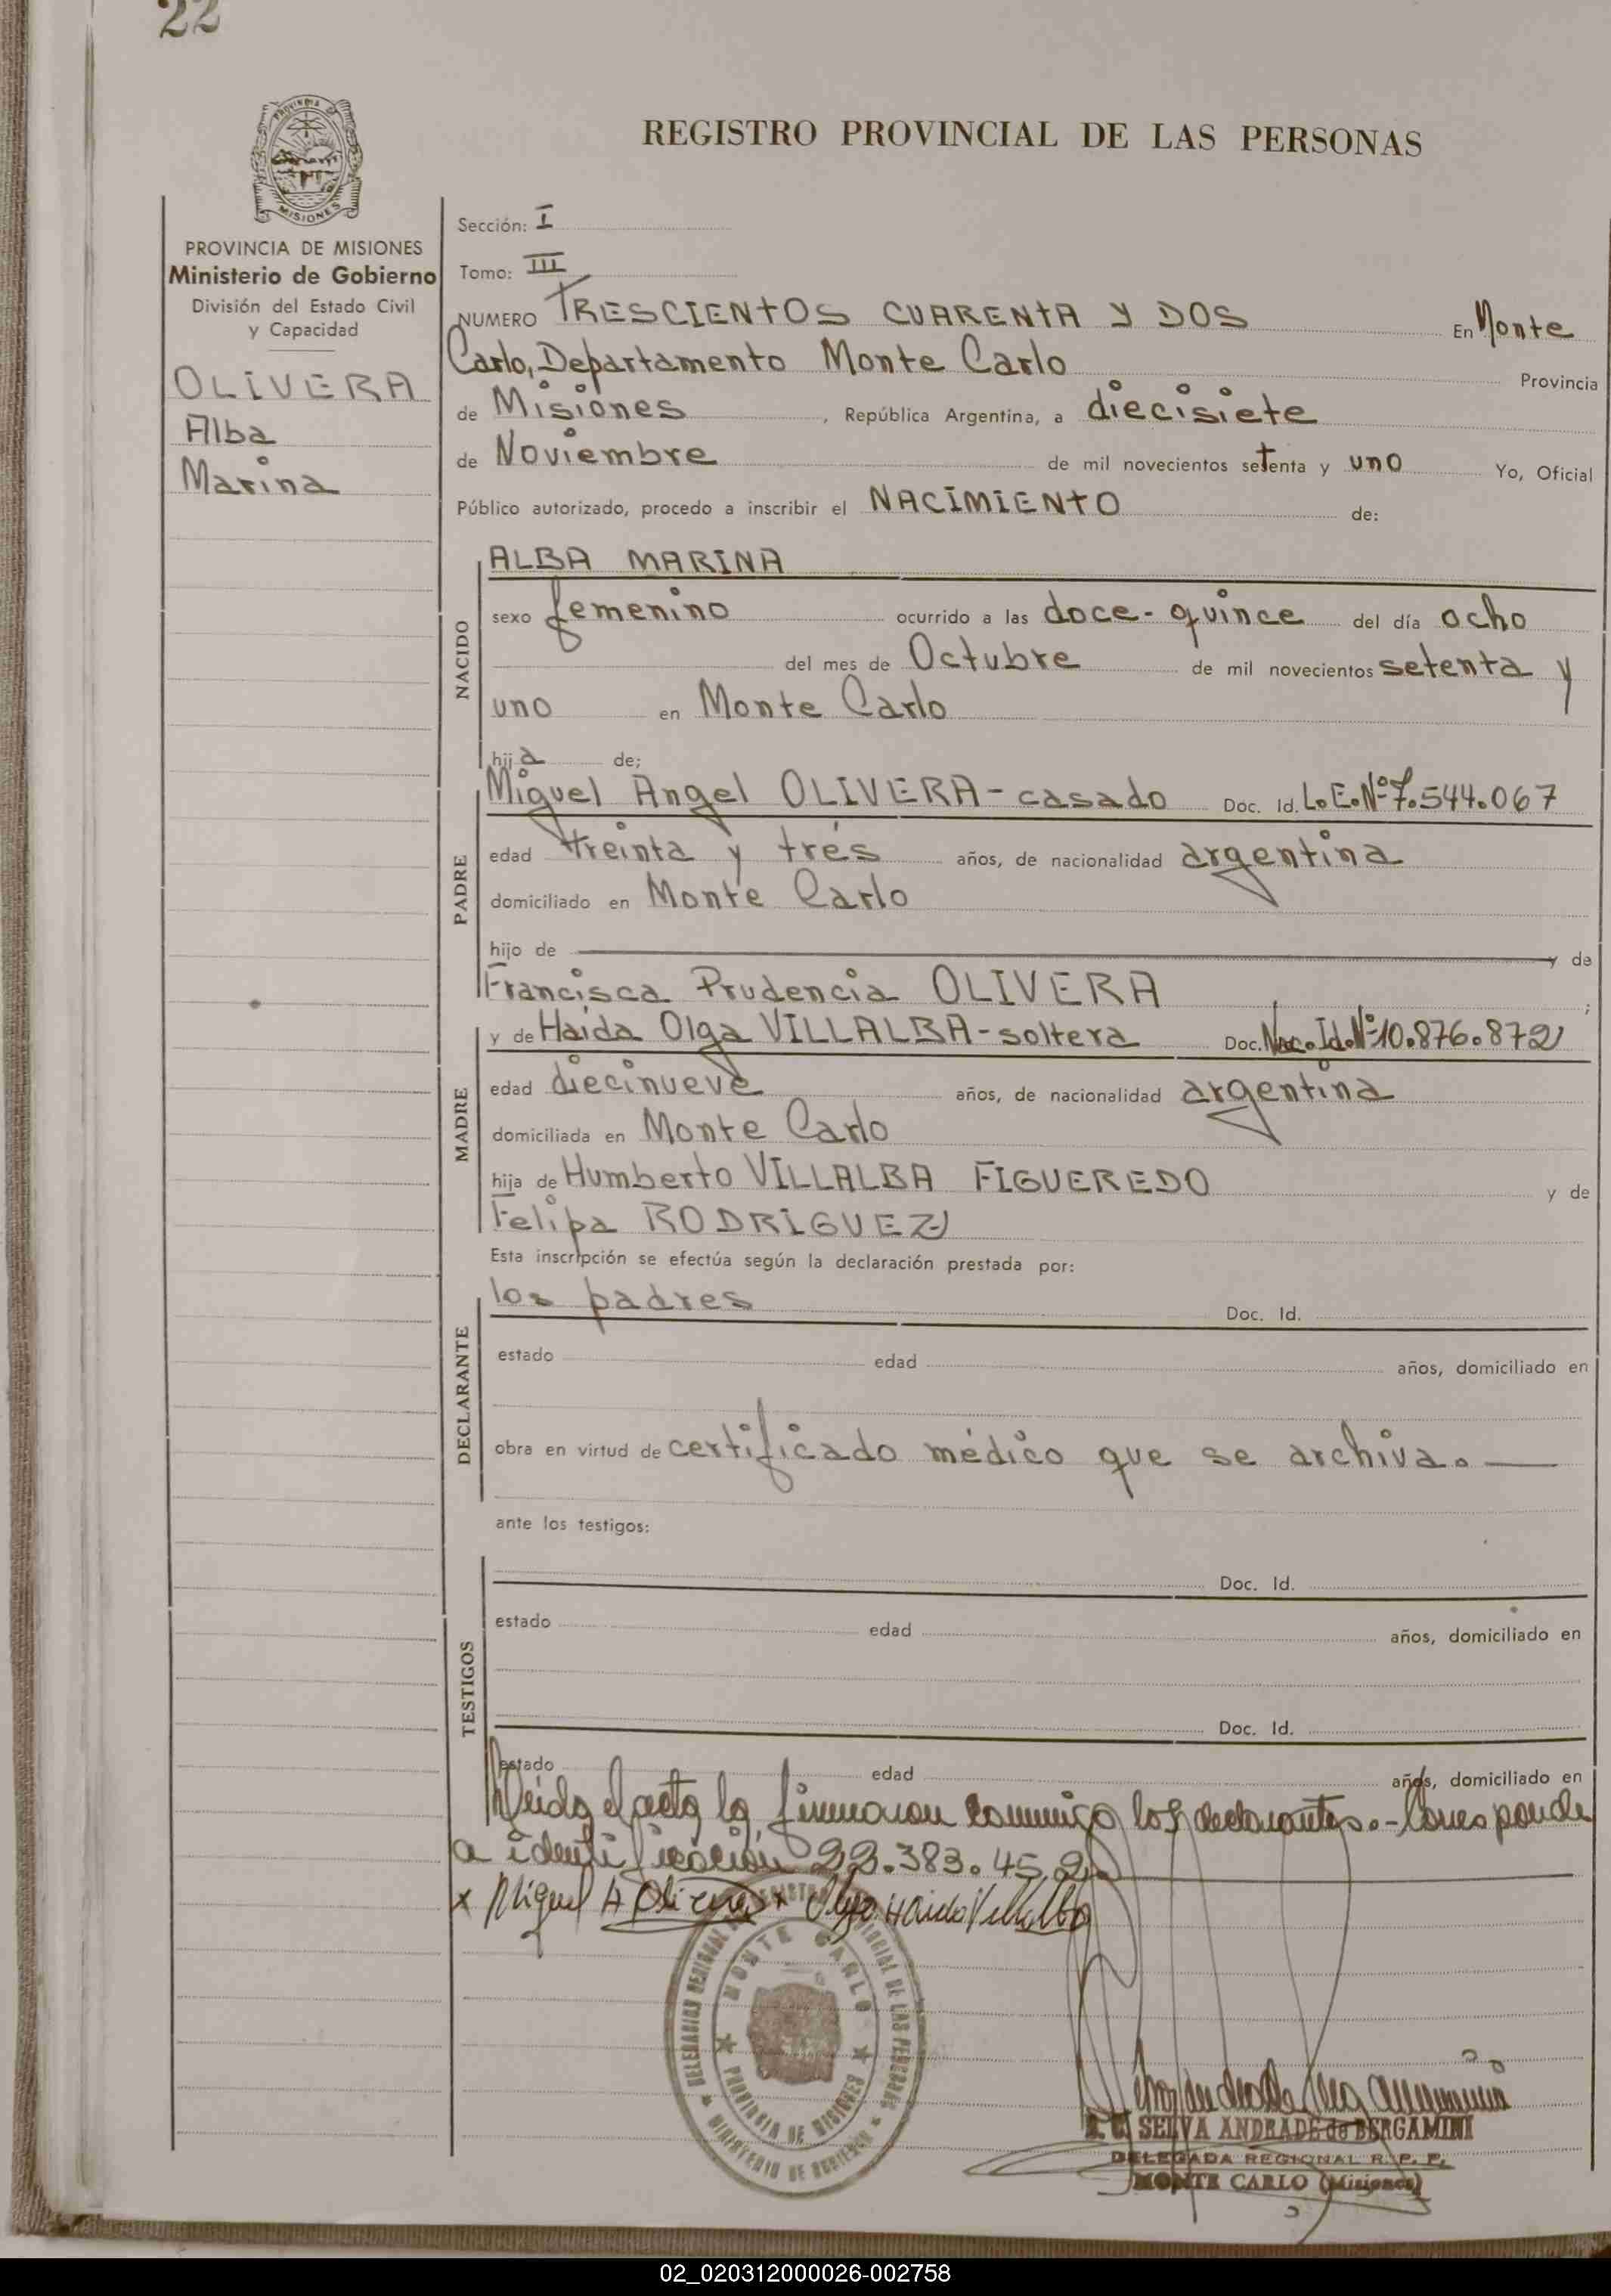 22
PROVINCIA DE
MISIONES
REGISTRO PROVINCIAL DE LAS PERSONAS
PROVINCIA DE MISIONES
Ministerio de Gobierno
División del Estado Civil
y Capacidad
OLIVERA
Alba
Marina
Sección: I
Tomo: III
NUMERO TRESCIENTOS CUARENTA Y DOS En Monte
Carlo, Departamento Monte Carlo Provincia
de Misiones, República Argentina, a diecisiete
de Noviembre de mil novecientos setenta y uno Yo, Oficial
Público autorizado, procedo a inscribir el NACIMIENTO de:
NACIDO
ALBA MARINA
sexo femenino ocurrido a las doce- quince del día ocho
del mes de Octubre de mil novecientos setenta y
uno en Monte Carlo
hija de;
PADRE
Miguel Angel OLIVERA - casado Doc. Id. L.E.Nº 7.544.067
edad treinta y trés años, de nacionalidad argentina
domiciliado en Monte Carlo
hijo de y de
Francisca Prudencia OLIVERA ;
MADRE
y de Haida Olga VILLALBA - soltera Doc. Nac. Id. Nº 10.876.872
edad diecinueve años, de nacionalidad argentina
domiciliada en Monte Carlo
hija de Humberto VILLALBA FIGUEREDO y de
Felipa RODRIGUEZ
Esta inscripción se efectúa según la declaración prestada por:
DECLARANTE
los padres Doc. Id.
estado edad años, domiciliado en
obra en virtud de certificado médico que se archiva. —
ante los testigos:
TESTIGOS
Doc. Id.
estado edad años, domiciliado en
Doc. Id.
estado edad años, domiciliado en
Leida el acta la firmaron conmigo los declarantes.- Corresponde
a identificación 22.383.452
x Miguel A Olivera x Olga Haida Villalba
DELEGACION REGIONAL REGISTRO PROVINCIAL DE LAS PERSONAS
MONTE CARLO
PROVINCIA DE MISIONES
MINISTERIO DE GOBIERNO
SELVA ANDRADE de BERGAMINI
DELEGADA REGIONAL R. P. P.
MONTE CARLO (Misiones)
02_020312000026-002758